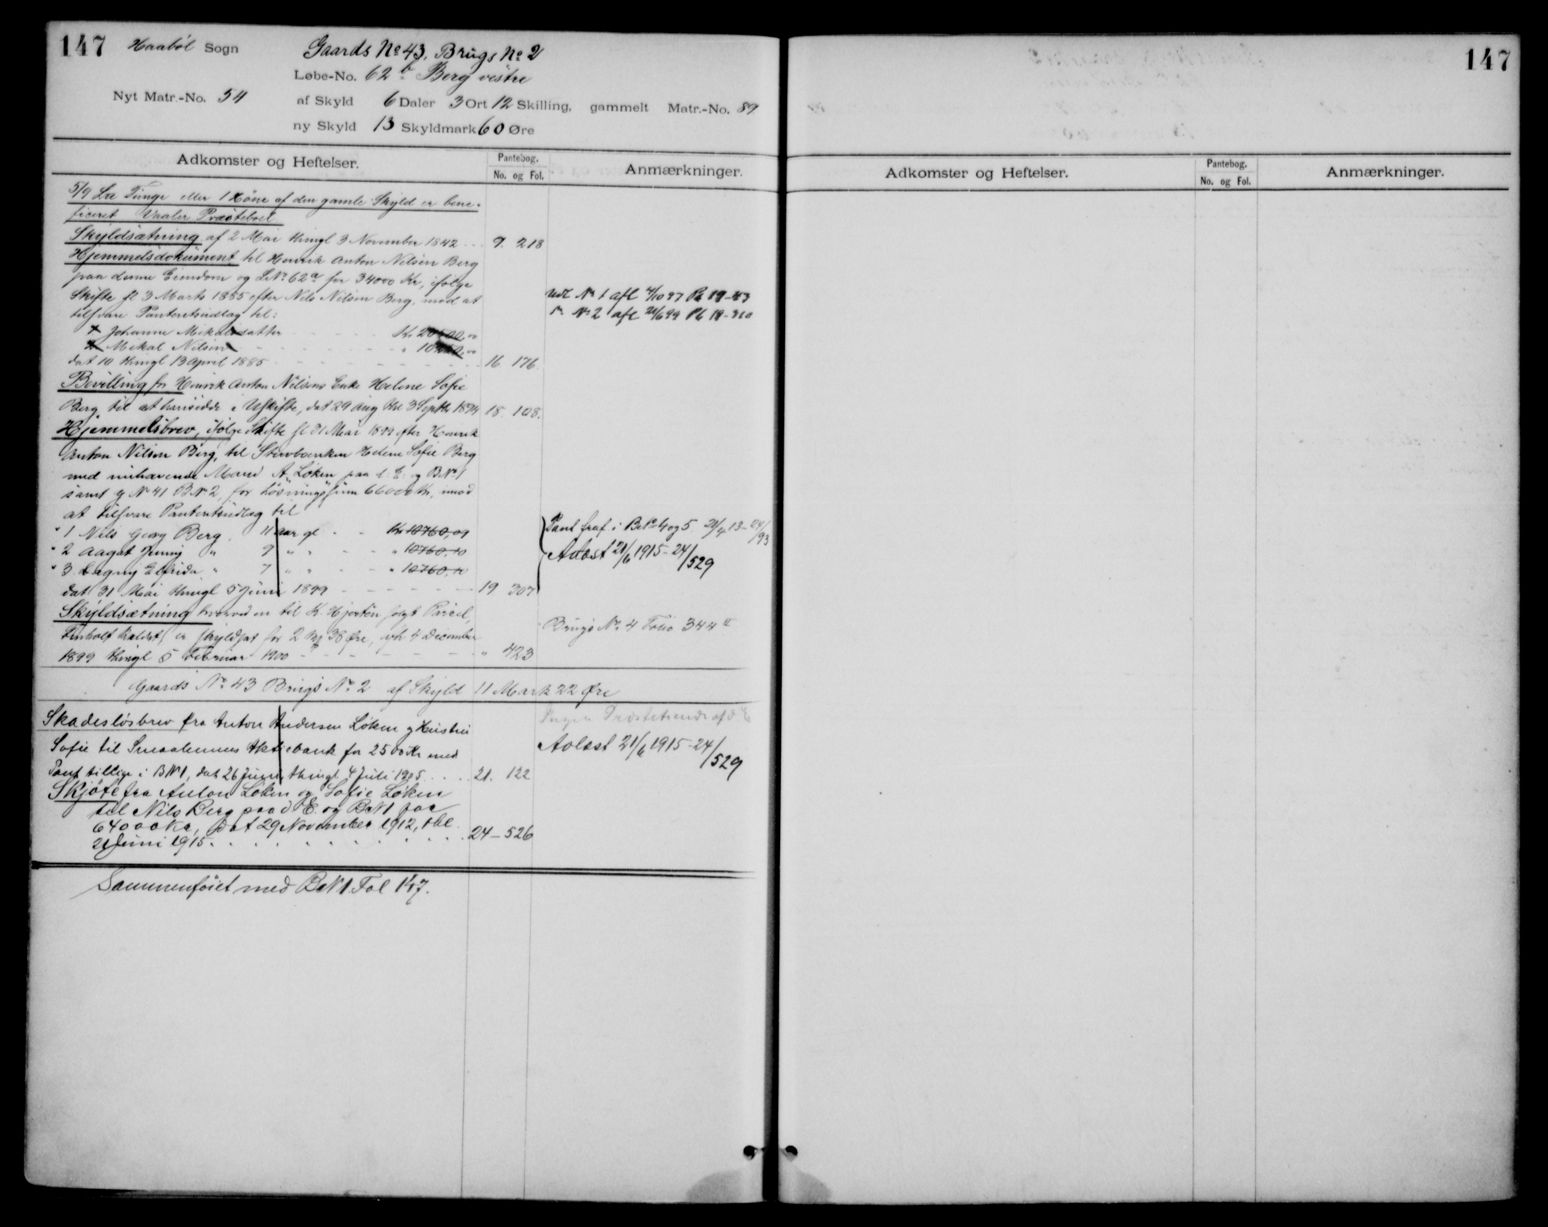 147 Haabøl Sogn Gaards No 43, Brugs No 2
Løbe-No. 62 b Berg vestre
Nyt Matr.-No. 54 af Skyld 6 Daler 3 Ort 12 Skilling, gammelt Matr.-No. 89
ny Skyld 13 Skyldmark 60 Øre
Adkomster og Heftelser. Pantebog. No. og Fol. Anmærkninger.
5/9 Lre Tunge eller 1 Høne af den gamle Skyld er bene-
ficeret Vaaler Præstebol
Skyldsætning af 2 Mai thingl 3 November 1842 9. 218
Hjemmelsdokument til Henrik Anton Nilsen Berg
paa denne Eiendom og LNo 62a for 34000 Kr, ifølge
Skifte sl 3 Marts 1885 efter Nils Nilsen Berg, mod at
tilsvare Panteretsudlag til:
Johanne Mikalsdatter Kr
Mekal Nilsen
dat 10 thingl 13 April 1885 16 176
Bevilling for Henrik Anton Nilsens Enke Helene Sofie
Berg til at hensidde i Uskifte, dat 29 Aug thl 3 Septb 1894 18. 108.
Hjemmelsbrev, ifølge Skifte sl 31 Mai 1899 efter Henrik
Anton Nilsen Berg, til Stervboenken Helene Sofie Berg
med nuhavende Mand A. Løken paa d. E. og BNo 1
samt g No 41 BNo 2, for Løsningssum 66000 Kr, mod
at tilsvare Panteretsudlag til
1 Nils Georg Berg 11 aar gl Kr 10760,00
2 Aagot Jenny " 9 " " " 10760,00
3 Dagny Elfrida " 7 " " " 10760,00
dat 31 Mai thingl 5 Juni 1899 19 307
Skyldsætning hvorved en til K. Hjorten solgt Parcel,
kaldet, er skyldsat for 2 Mk 38 Øre, afh 4 December
1899 thingl 5 Februar 1900 " 423
Nedl No 1 afl 97 Pb 19-43
No 2 afl 99 Pb 19-310
Pant fraf i BNo 4 og 5 13-24/93
Avlæst 21/6 1915-24/529
Brugs No 4 Folio 344 a
Gaards No 43 Brugs No 2 af Skyld 11 Mark 22 Øre
Skadesløsbrev fra Anton Andersen Løken g Hustru
Sofie til Smaalenenes Aktiebank for 2500 Kr med
Pant tillige i BNo 1, dat 26 Juni, thingl 4 Juli 1905 21. 122
Avlæst 21/6 1915-24/529
Skjøte fra Anton Løken og Sofie Løken
til Nils Berg paa d. E. og BNo 1 for
64000 Kr, dat 29 November 1912, tbl.
21 Juni 1915 24-526
Sammenføiet med BNo 1 Fol 147.
147
Adkomster og Heftelser. Pantebog. No. og Fol. Anmærkninger.